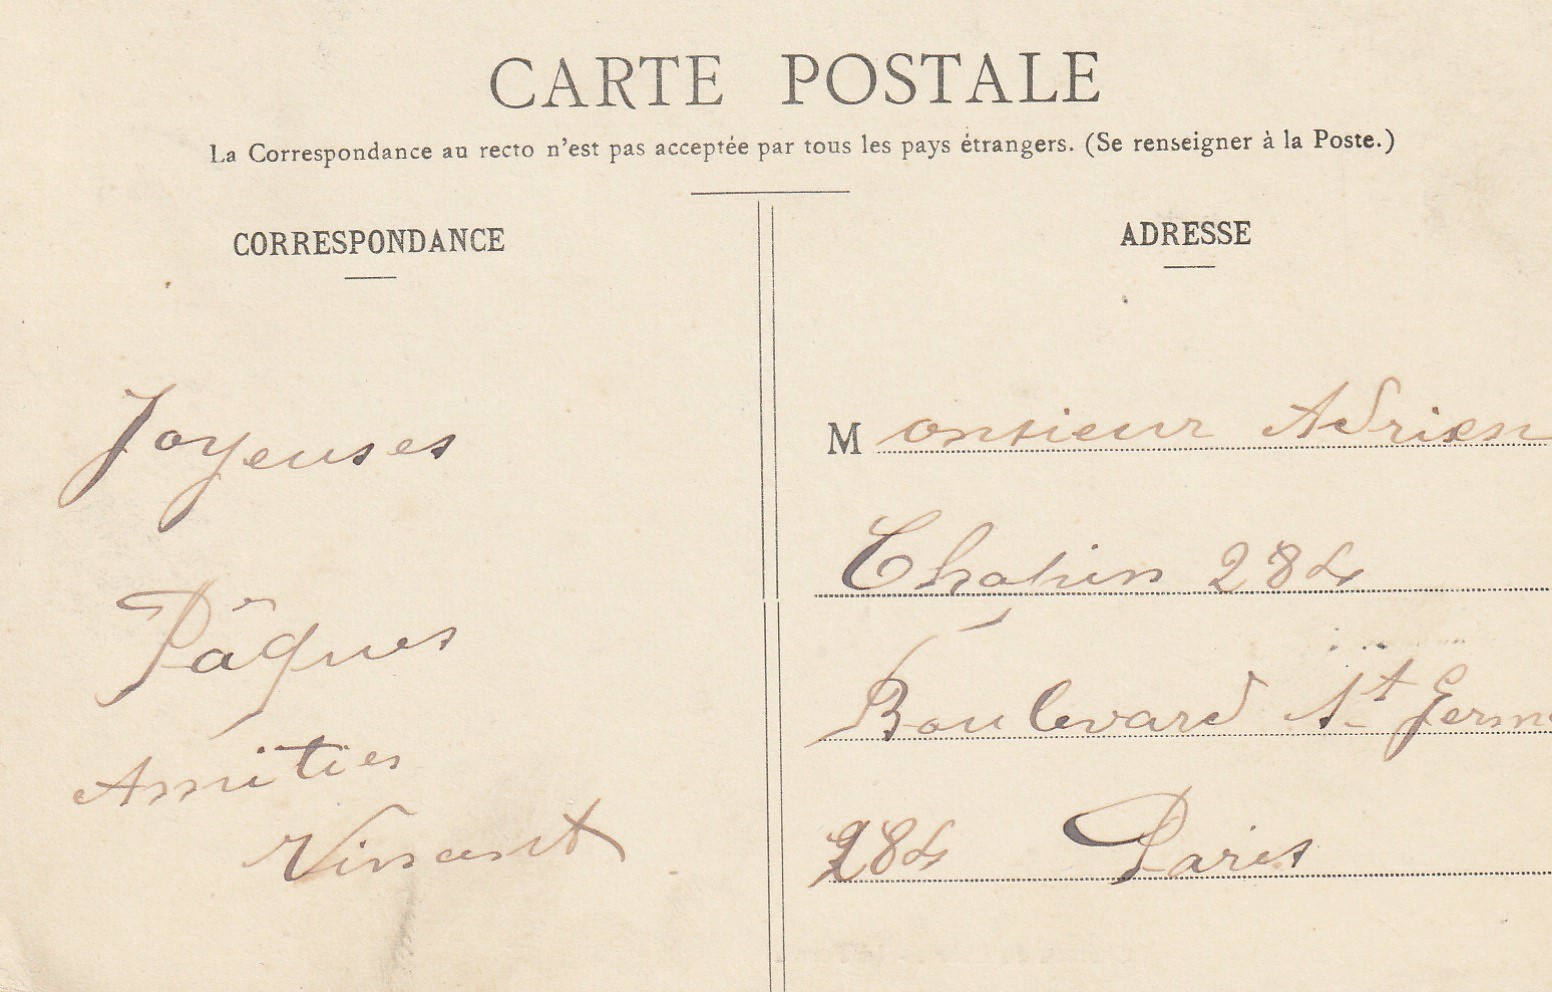 CARTE POSTALE
La Correspondance au recto n'est pas acceptée par tous les pays étrangers. (Se renseigner à la Poste.)
CORRESPONDANCE
Joyeuses
Pâques
Amitiés
ADRESSE
Monsieur Adrien
284
Boulevard St Germ
284 Paris